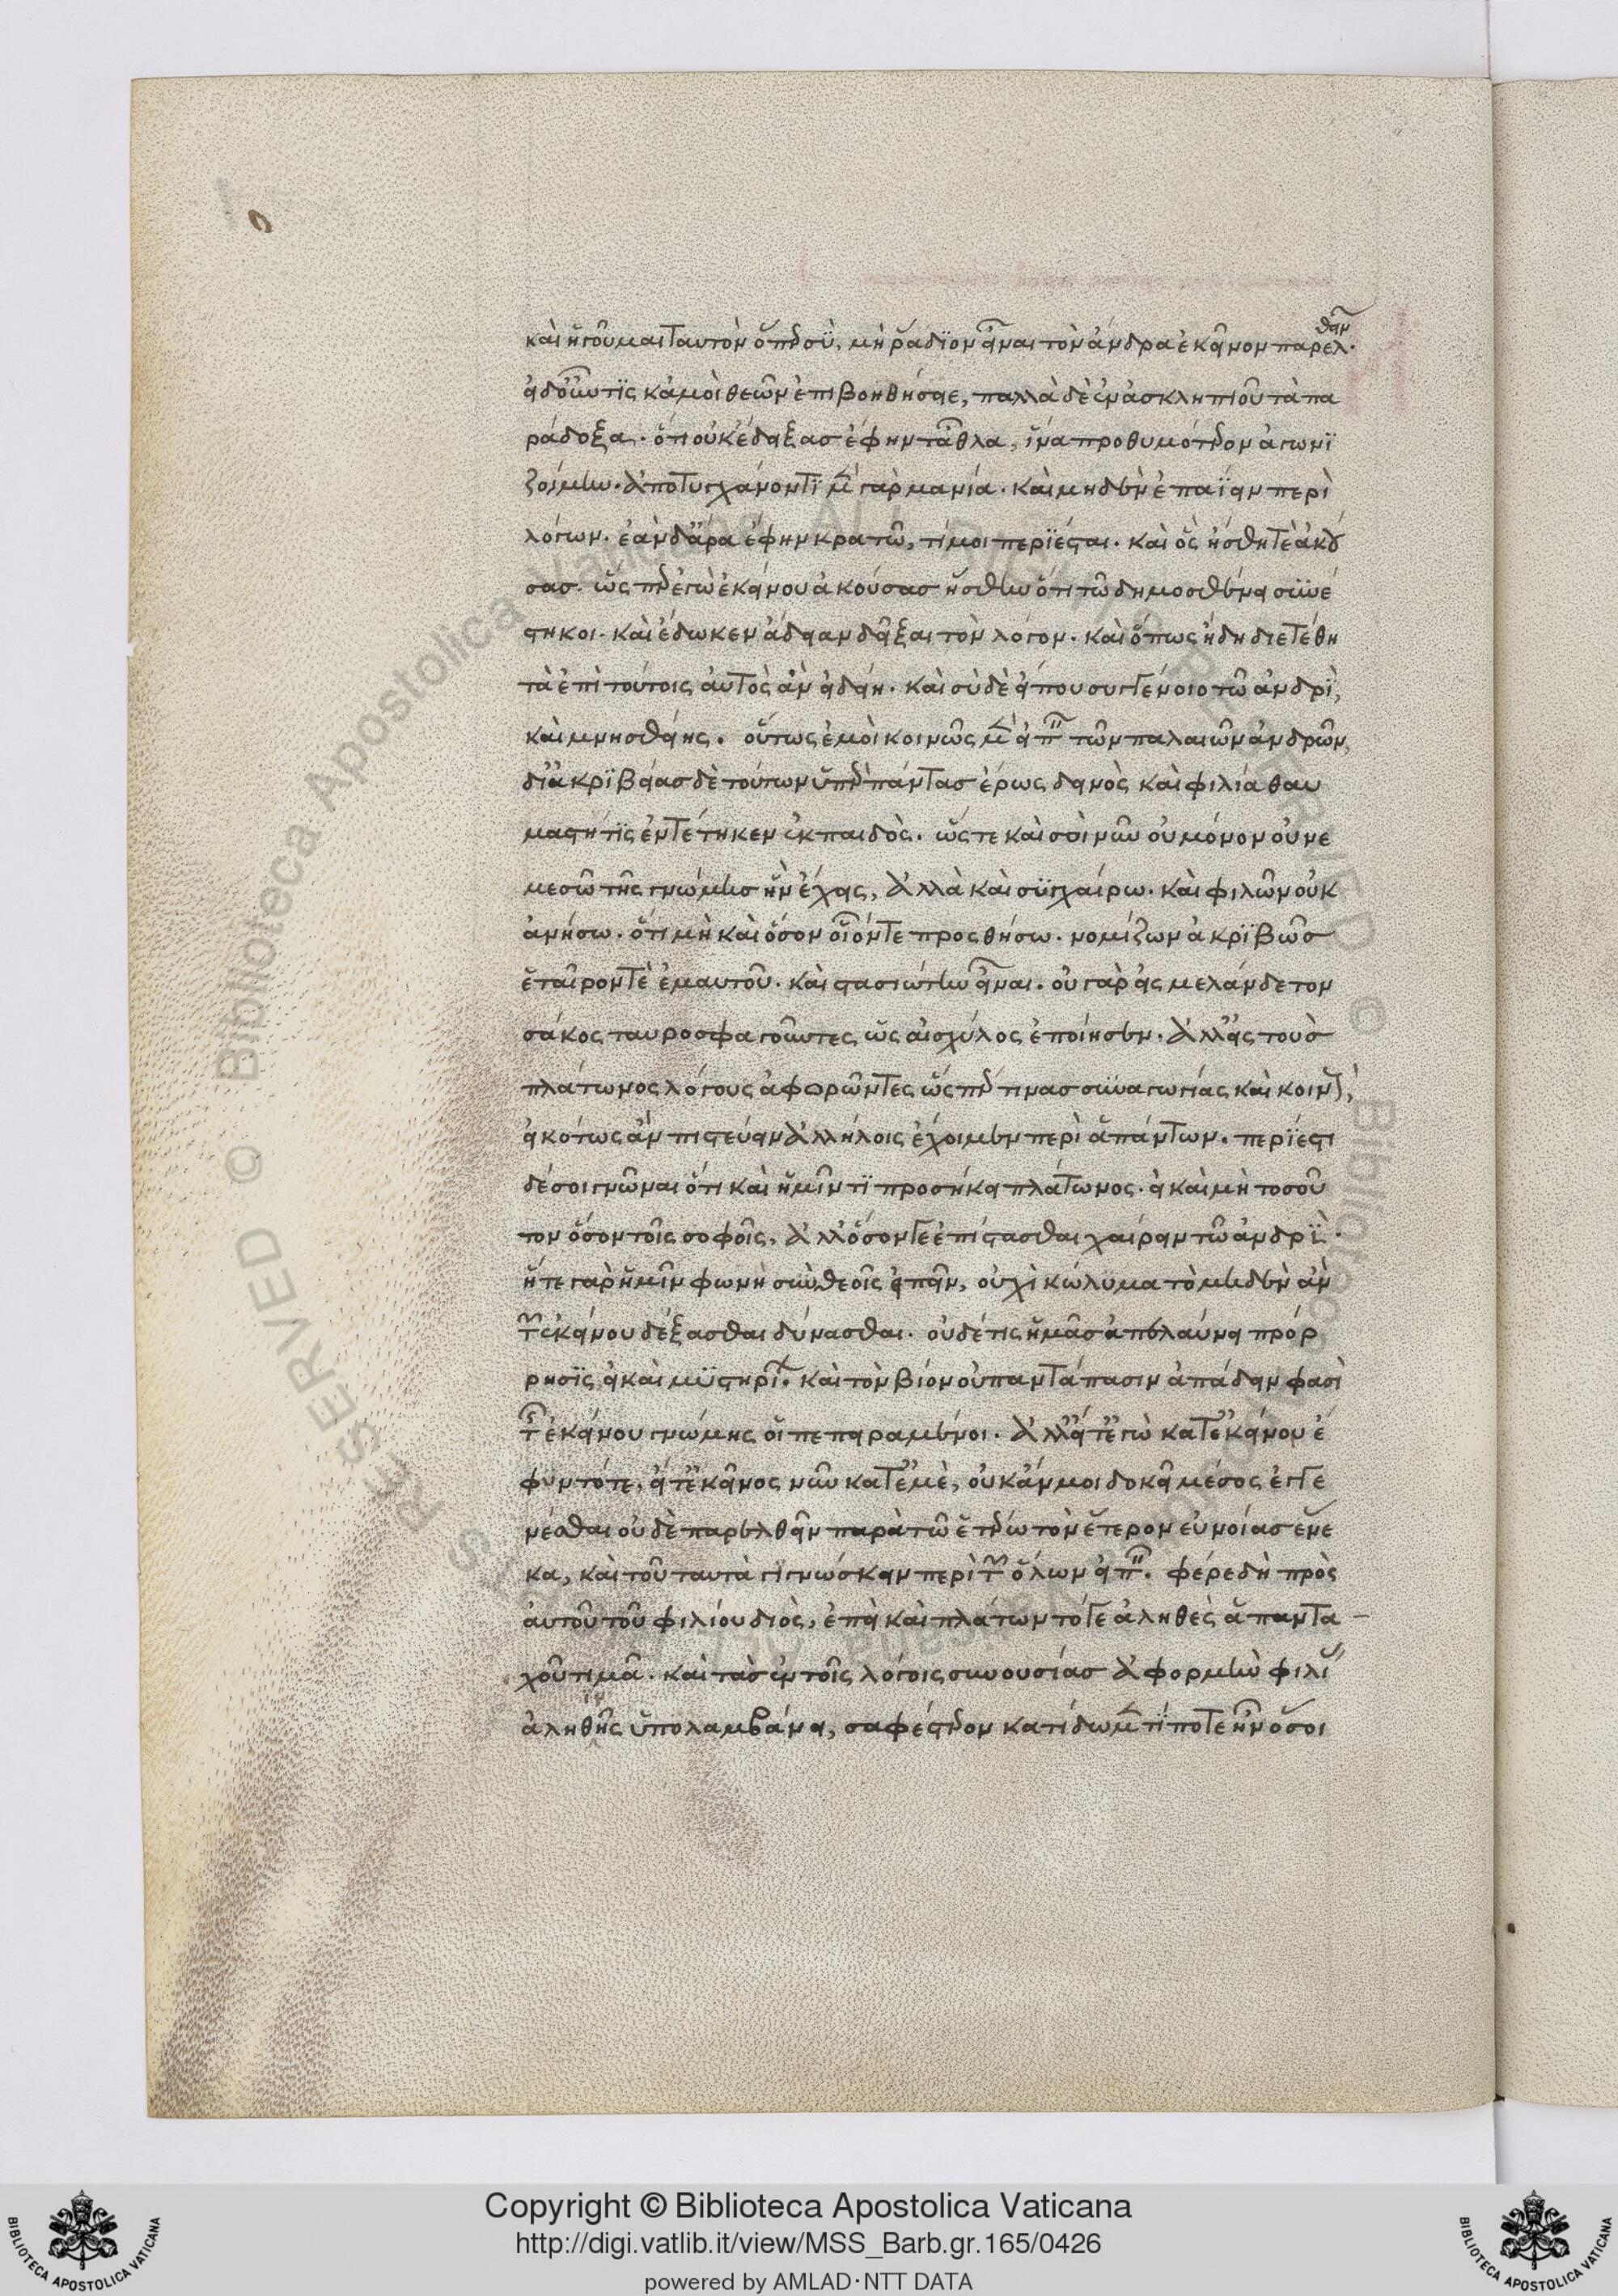 καὶ ἡγοῦμαι ταυτὸν ὅπερ σὺ, μὴ ῥάδϊον εἶναι τὸν ἄνδρα ἐκεῖνον παρελθεῖν·
εἰ δ' οὖν τὶς κἀμοὶ θεῶν ἐπιβοηθήσαιε, πολλὰ δὲ ἐν ἀσκληπιοῦ τὰ πα
ράδοξα· ὅτι οὐκ ἔδειξας ἔφην τἆθλα, ἵνα προθυμότερον ἀγωνϊ
ζοίμην. ἀποτυγχάνοντϊ μὲν γὰρ μανία. καὶ μηδὲν ἐπαΐειν περὶ
λόγων. ἐὰν δ' ἄρα ἔφην κρατῶ, τί μοι περϊέσται. καὶ ὃς ἥσθη τὲ ἀκού
σας. ὥς περ ἐγὼ ἐκείνου ἀκούσας ἥσθην ὅτι τῶ δημοσθένει συνε
στήκοι. καὶ ἔδωκεν ἄδειαν δεῖξαι τὸν λόγον. καὶ ὅπως ἤδη διετέθη
τὰ ἐπὶ τούτοις αὐτὸς ἂν εἰδείη. καὶ σὺ δὲ εἴπου συγγένοιο τῶ ἀνδρὶ,
καὶ μνησθείης. οὕτως ἐμοὶ κοινῶς μὲν εἰπεῖν τῶν παλαιῶν ἀνδρῶν,
δι' ἀκρϊβείας δὲ τούτων ὑπὲρ πάντας ἔρως δεινὸς καὶ φιλία θαυ
μαστή τϊς ἐντέτηκεν ἐκ παιδὸς. ὥς τε καὶ σοὶ νῦν οὐ μόνον οὐ νε
μεσῶ τῆς γνώμης ἣν ἔχεις, ἀλλὰ καὶ συγχαίρω. καὶ φιλῶν οὐκ
ἀνήσω. ὅτι μὴ καὶ ὅσον οἷόν τε προσθήσω. νομίζων ἀκρϊβῶς
ἑταῖρον τὲ ἐμαυτοῦ. καὶ στασιώτην εἶναι. οὐ γὰρ εἰς μελάνδετον
σάκος ταυροσφαγοῦντες ὥς αἰσχύλος ἐποίησεν. ἀλλ' εἰς τοὺς
πλάτωνος λόγους ἀφορῶντες ὥς περ τινας συναγωγίας καὶ κοινοὺς,
εἰκότως ἂν πιστεύειν ἀλλήλοις ἔχοιμεν περὶ ἁπάντων. περϊέστι
δέ σοι γνῶναι ὅτι καὶ ἡμῖν τϊ προσήκει πλάτωνος. εἰ καὶ μὴ τοσοῦ
τον ὅσον τοῖς σοφοῖς, ἀλλ' ὅσον γε ἐπίστασθαι χαίρειν τῶ ἀνδρϊ.
ἥ τε γὰρ ἡμῖν φωνὴ σὺν θεοῖς εἰπεῖν, οὐχὶ κώλυμα τὸ μηδὲν ἂν
τῶν ἐκείνου δέξασθαι δύνασθαι. οὐδέ τις ἡμᾶς ἀπελαύνει πρόρ
ρησϊς εἰ καὶ μϋστηρίων. καὶ τὸν βίον οὐ παντάπασιν ἀπάδειν φασὶ
τῆς ἐκείνου γνώμης οἱ πεπειραμένοι. ἀλλ' εἴτ' ἐγὼ κατ' ἐκείνου ἔ
φυν τότε, εἴτ' ἐκεῖνος νῦν κατ' ἐμὲ, οὐκ ἄν μοι δοκεῖ μέσος ἐγγε
νέσθαι οὐδὲ παρελθεῖν παρὰ τῶ ἑτέρω τὸν ἕτερον εὐνοίας ἕνε
κα, καὶ τοῦ ταυτὰ γϊγνώσκειν περὶ τῶν ὅλων εἰπεῖν. φέρε δὴ πρὸς
αὐτοῦ τοῦ φιλίου διὸς, ἐπεὶ καὶ πλάτων τό γε ἀληθὲς ἁπαντα –
χοῦ τιμᾶ. καὶ τὰς ἐν τοῖς λόγοις συνουσίας ἀφορμὴν φιλίας
ἀληθῆς ὑπολαμβάνει, σαφέστερον κατίδωμεν τί ποτε ἦν ὅσοι
Copyright © Biblioteca Apostolica Vaticana
http://digi.vatlib.it/view/MSS_Barb.gr.165/0426
powered by AMLAD·NTT DATA